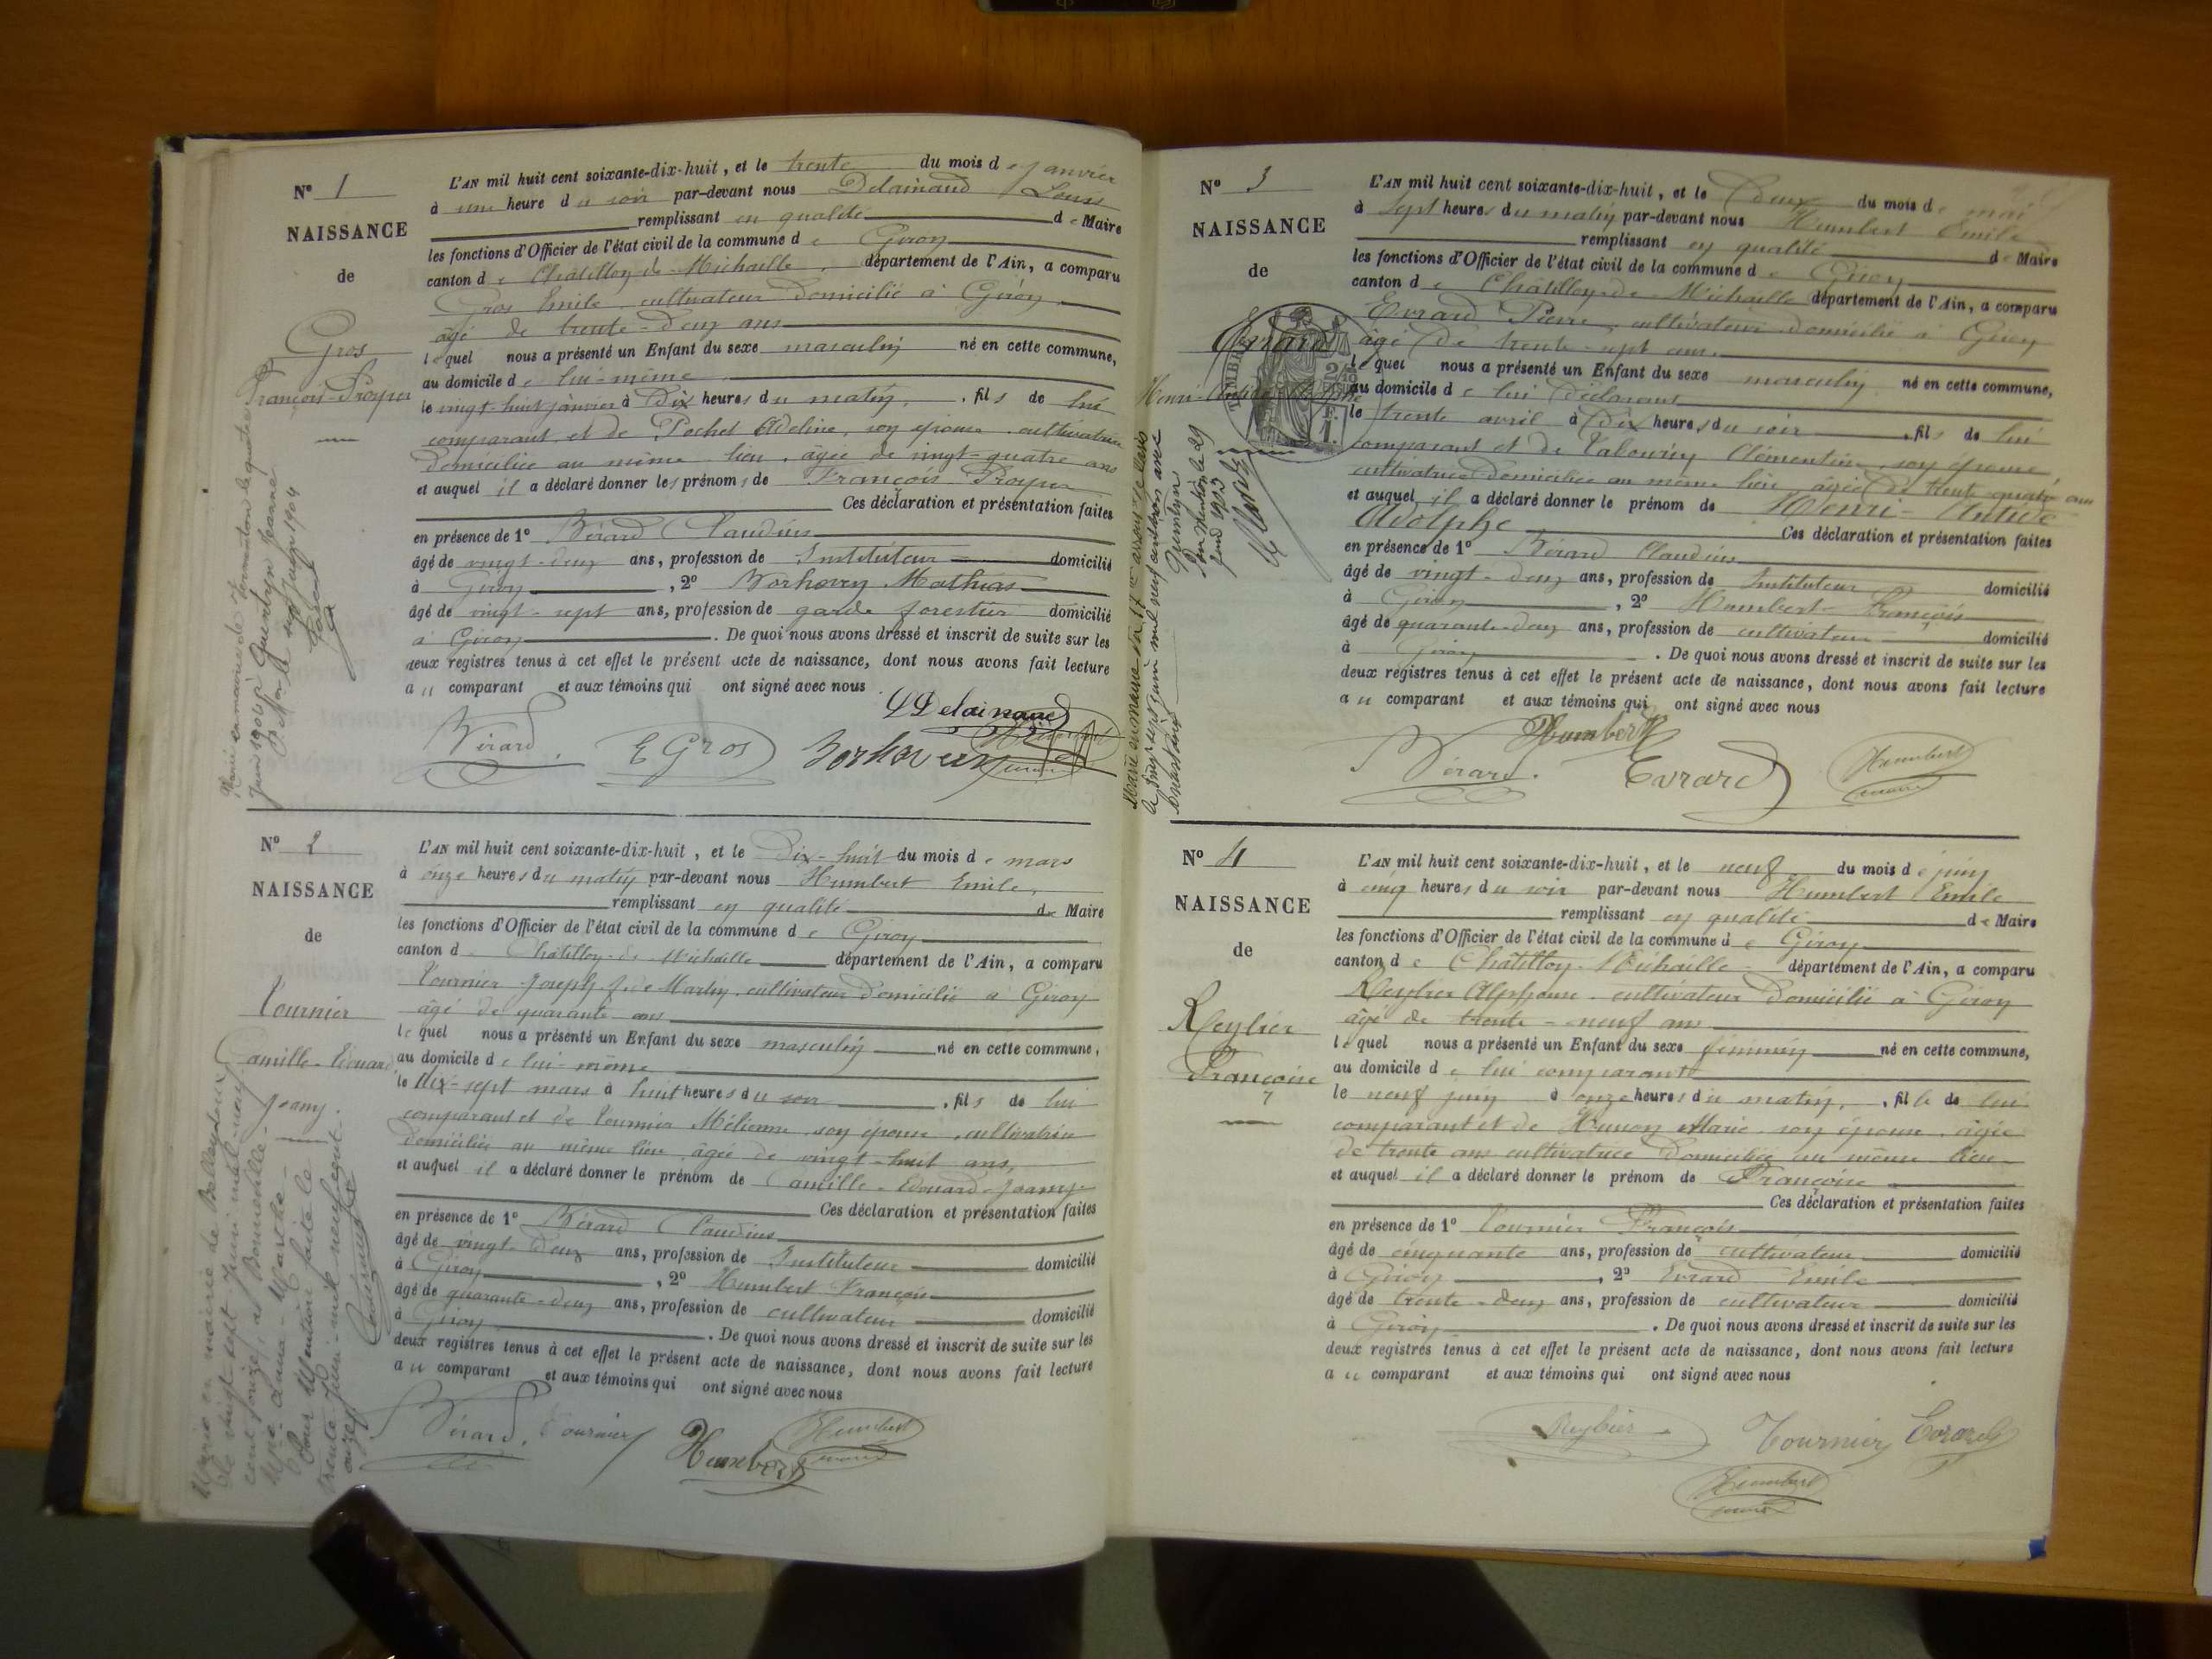 N° 1
NAISSANCE
de
Gros
François-Prosper
L'AN mil huit cent soixante-dix-huit, et le trente du mois de janvier
à une heure du soir par-devant nous Delainaud Louis
remplissant en qualité de Maire
les fonctions d'Officier de l'état civil de la commune de Giron
canton de Châtillon-de-Michaille, département de l'Ain, a comparu
Gros Emile cultivateur domicilié à Giron
âgé de trente-deux ans
lequel nous a présenté un Enfant du sexe masculin né en cette commune,
au domicile de lui-même
le vingt-huit janvier à dix heures du matin, fils de lui
comparant et de Pochet Adeline, son épouse cultivatrice
domiciliée au même lieu, âgée de vingt-quatre ans
et auquel il a déclaré donner les prénoms de François Prosper
Ces déclaration et présentation faites
en présence de 1° Bérard Claudius
âgé de vingt-deux ans, profession de Instituteur domicilié
à Giron, 2° Borhoven Mathias
âgé de vingt-sept ans, profession de garde forestier domicilié
à Giron. De quoi nous avons dressé et inscrit de suite sur les
deux registres tenus à cet effet le présent acte de naissance, dont nous avons fait lecture
au comparant et aux témoins qui ont signé avec nous
LDelainaud
Bérard E Gros Borhoven Humbert
N° 2
NAISSANCE
de
Tournier
Camille-Edouard
Joamy.
L'AN mil huit cent soixante-dix-huit, et le dix-huit du mois de mars
à onze heures du matin par-devant nous Humbert Emile,
remplissant en qualité de Maire
les fonctions d'Officier de l'état civil de la commune de Giron
canton de Châtillon-de-Michaille département de l'Ain, a comparu
Tournier Joseph f. de Martin cultivateur domicilié à Giron
âgé de quarante ans
lequel nous a présenté un Enfant du sexe masculin né en cette commune,
au domicile de lui-même
le dix-sept mars à huit heures du soir, fils de lui
comparant et de Tournier Mélienne son épouse, cultivatrice
domiciliée au même lieu âgée de vingt-huit ans,
et auquel il a déclaré donner le prénom de Camille-Edouard-Joamy
Ces déclaration et présentation faites
en présence de 1° Bérard Claudius
âgé de vingt-deux ans, profession de Instituteur domicilié
à Giron, 2° Humbert François
âgé de quarante-deux ans, profession de cultivateur domicilié
à Giron. De quoi nous avons dressé et inscrit de suite sur les
deux registres tenus à cet effet le présent acte de naissance, dont nous avons fait lecture
au comparant et aux témoins qui ont signé avec nous
Bérard. Tournier Humbert Humbert
Marié en mairie de
le vingt-sept juin mil neuf
cent onze, à
Pour Mention faite le
trente juin mil neuf cent
onze
N° 3
NAISSANCE
de
Evrard
L'AN mil huit cent soixante-dix-huit, et le deux du mois de mai
à sept heures du matin par-devant nous Humbert Emile
remplissant en qualité de Maire
les fonctions d'Officier de l'état civil de la commune de Giron
canton de Châtillon-de-Michaille département de l'Ain, a comparu
Evrard Pierre, cultivateur domicilié à Giron
âgé de trente-sept ans.
lequel nous a présenté un Enfant du sexe masculin né en cette commune,
au domicile de lui déclarant
le trente avril à dix heures du soir, fils de lui
comparant et de Clémentine son épouse
cultivatrice domiciliée au même lieu, âgée de trente quatre ans
et auquel il a déclaré donner le prénom de Henri-Antide
Adolphe Ces déclaration et présentation faites
en présence de 1° Bérard Claudius
âgé de vingt-deux ans, profession de Instituteur domicilié
à Giron, 2° Humbert François
âgé de quarante-deux ans, profession de cultivateur domicilié
à Giron. De quoi nous avons dressé et inscrit de suite sur les
deux registres tenus à cet effet le présent acte de naissance, dont nous avons fait lecture
au comparant et aux témoins qui ont signé avec nous
Humbert
Bérard. Evrard Humbert
N° 4
NAISSANCE
de
Reylier
Françoise
L'AN mil huit cent soixante-dix-huit, et le neuf du mois de juin
à cinq heures du soir par-devant nous Humbert Emile
remplissant en qualité de Maire
les fonctions d'Officier de l'état civil de la commune de Giron
canton de Châtillon-Michaille département de l'Ain, a comparu
Alphonse cultivateur domicilié à Giron
âgé de trente-neuf ans
lequel nous a présenté un Enfant du sexe féminin né en cette commune,
au domicile de lui comparant
le neuf juin à onze heures du matin, fille de lui
comparant et de Marie son épouse âgée
de trente ans cultivatrice domiciliée au même lieu
et auquel il a déclaré donner le prénom de Françoise
Ces déclaration et présentation faites
en présence de 1° Tournier François
âgé de cinquante ans, profession de cultivateur domicilié
à Giron, 2° Evrard Emile
âgé de trente-deux ans, profession de cultivateur domicilié
à Giron. De quoi nous avons dressé et inscrit de suite sur les
deux registres tenus à cet effet le présent acte de naissance, dont nous avons fait lecture
au comparant et aux témoins qui ont signé avec nous
Reylier Tournier Evrard
Humbert